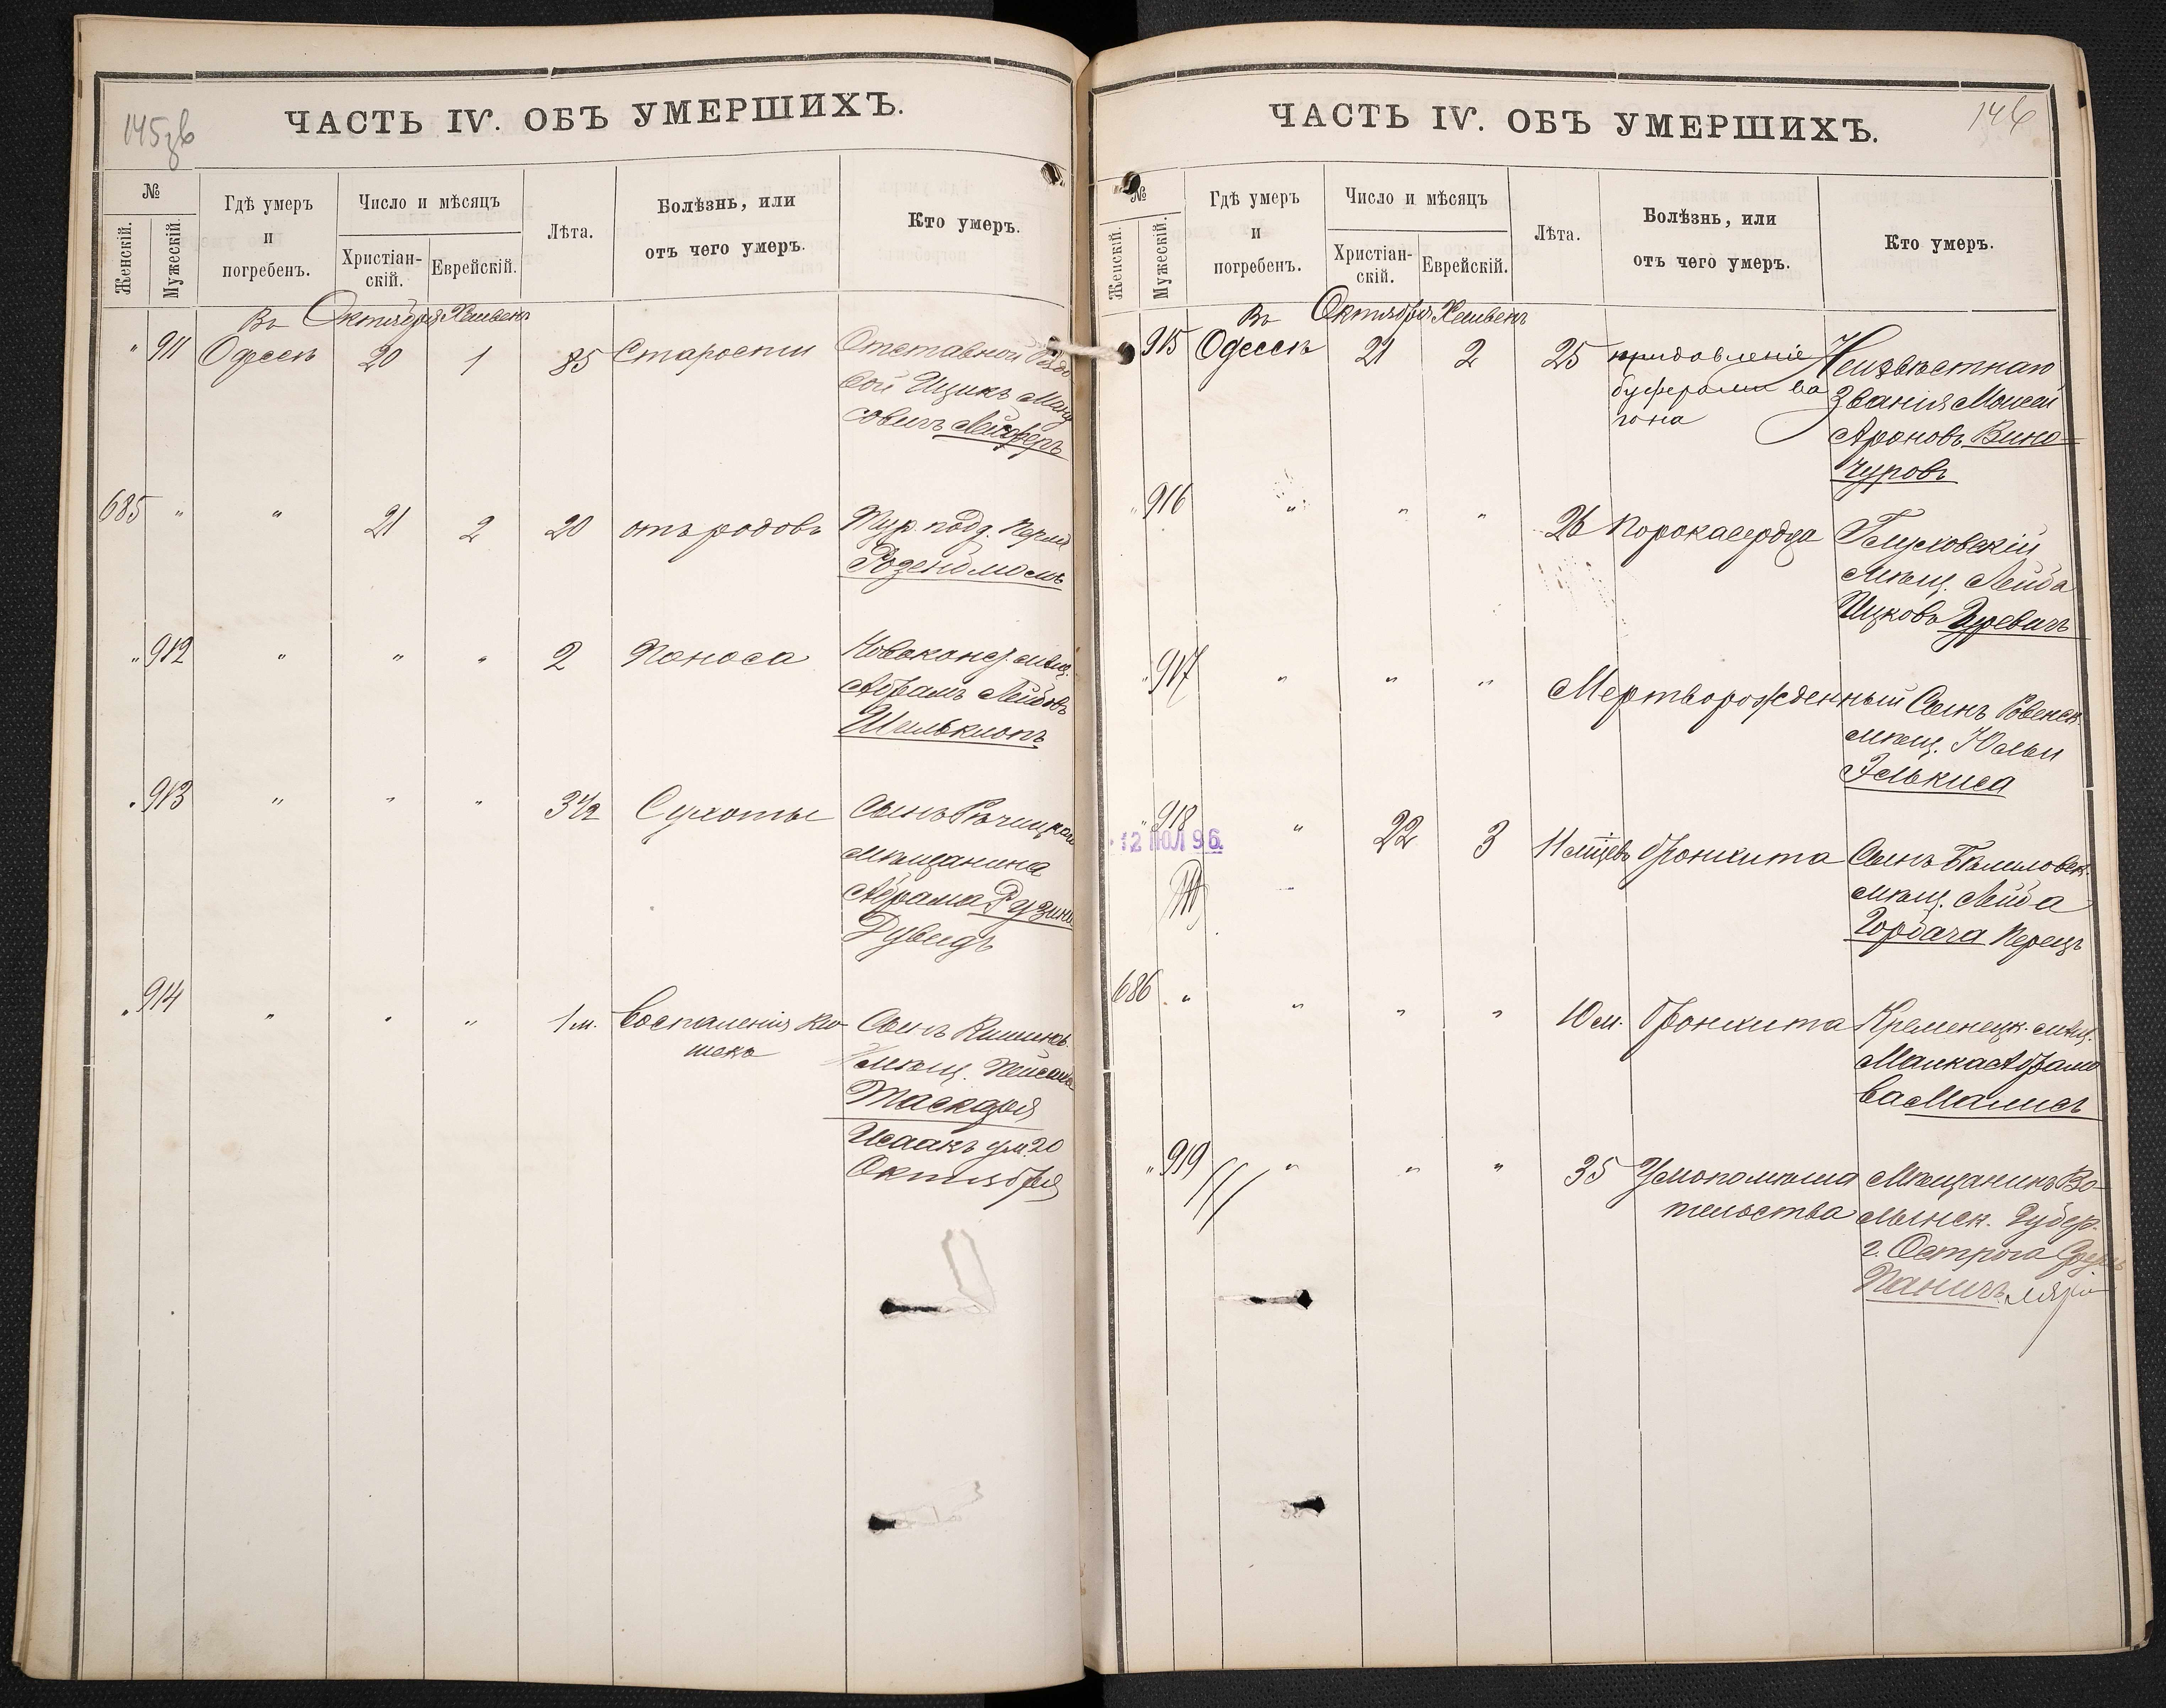 145 зв
ЧАСТЬ IV. ОБЪ УМЕРШИХЪ.
№
Женскій.
Мужескій.
Гдѣ умеръ
и
погребенъ.
Число и мѣсяцъ
Христіан-
скій.
Еврейскій.
Лѣта.
Болѣзнь, или
отъ чего умеръ.
Кто умеръ.
Въ Октября Хешвенъ
" 911 Одессѣ 20 1 85 Старости Отставной
Ицикъ
совичъ Лейдеръ
685 " " 21 2 20 отъ родовъ Тур. подд. Перля
Розенблюмъ
" 912 " " " 2 Поноса Новоконст. мѣщ.
Абрамъ Лейбовъ
" 913 " " " 3 1/2 Сухоты Сынъ Рѣчицкаго
мѣщанина
Абрама Рузина
Дувидъ
" 914 " " " 1 м. Воспаленія ки-
шекъ
Сынъ Кишинев.
мѣщ. Пейсаха
Таскаря
Исаакъ ум. 20
Октября
146
ЧАСТЬ IV. ОБЪ УМЕРШИХЪ.
№
Женскій.
Мужескій.
Гдѣ умеръ
и
погребенъ.
Число и мѣсяцъ
Христіан-
скій.
Еврейскій.
Лѣта.
Болѣзнь, или
отъ чего умеръ.
Кто умеръ.
Въ Октября Хешвенъ
" 915 Одессѣ 21 2 25 придавленіе
буферами ва
гона
Неизвѣстнаго
Званія Моисей
Ароновъ Вино-
куровъ
" 916 " " " 26 Порока сердца Глусковскій
мѣщ. Лейба
Ицковъ Гуревичъ
" 917 " " " Мертворожденный Сынъ Ровенск.
мѣщ. Юльи
Элькиса
" 918 " 22 3 11 мѣсяцевъ бронхита Сынъ
мѣщ. Лейба
Горбача Перецъ
12 ІЮЛ 96.
686 " " " " 10 м. бронхита Кременецк. мѣщ.
Малка Абрамо
ва Малисъ
" 919 " " " 35 Умопомѣша
тельства
Мѣщанинъ Во-
лынск. Губер.
г. Острога
Паничъ